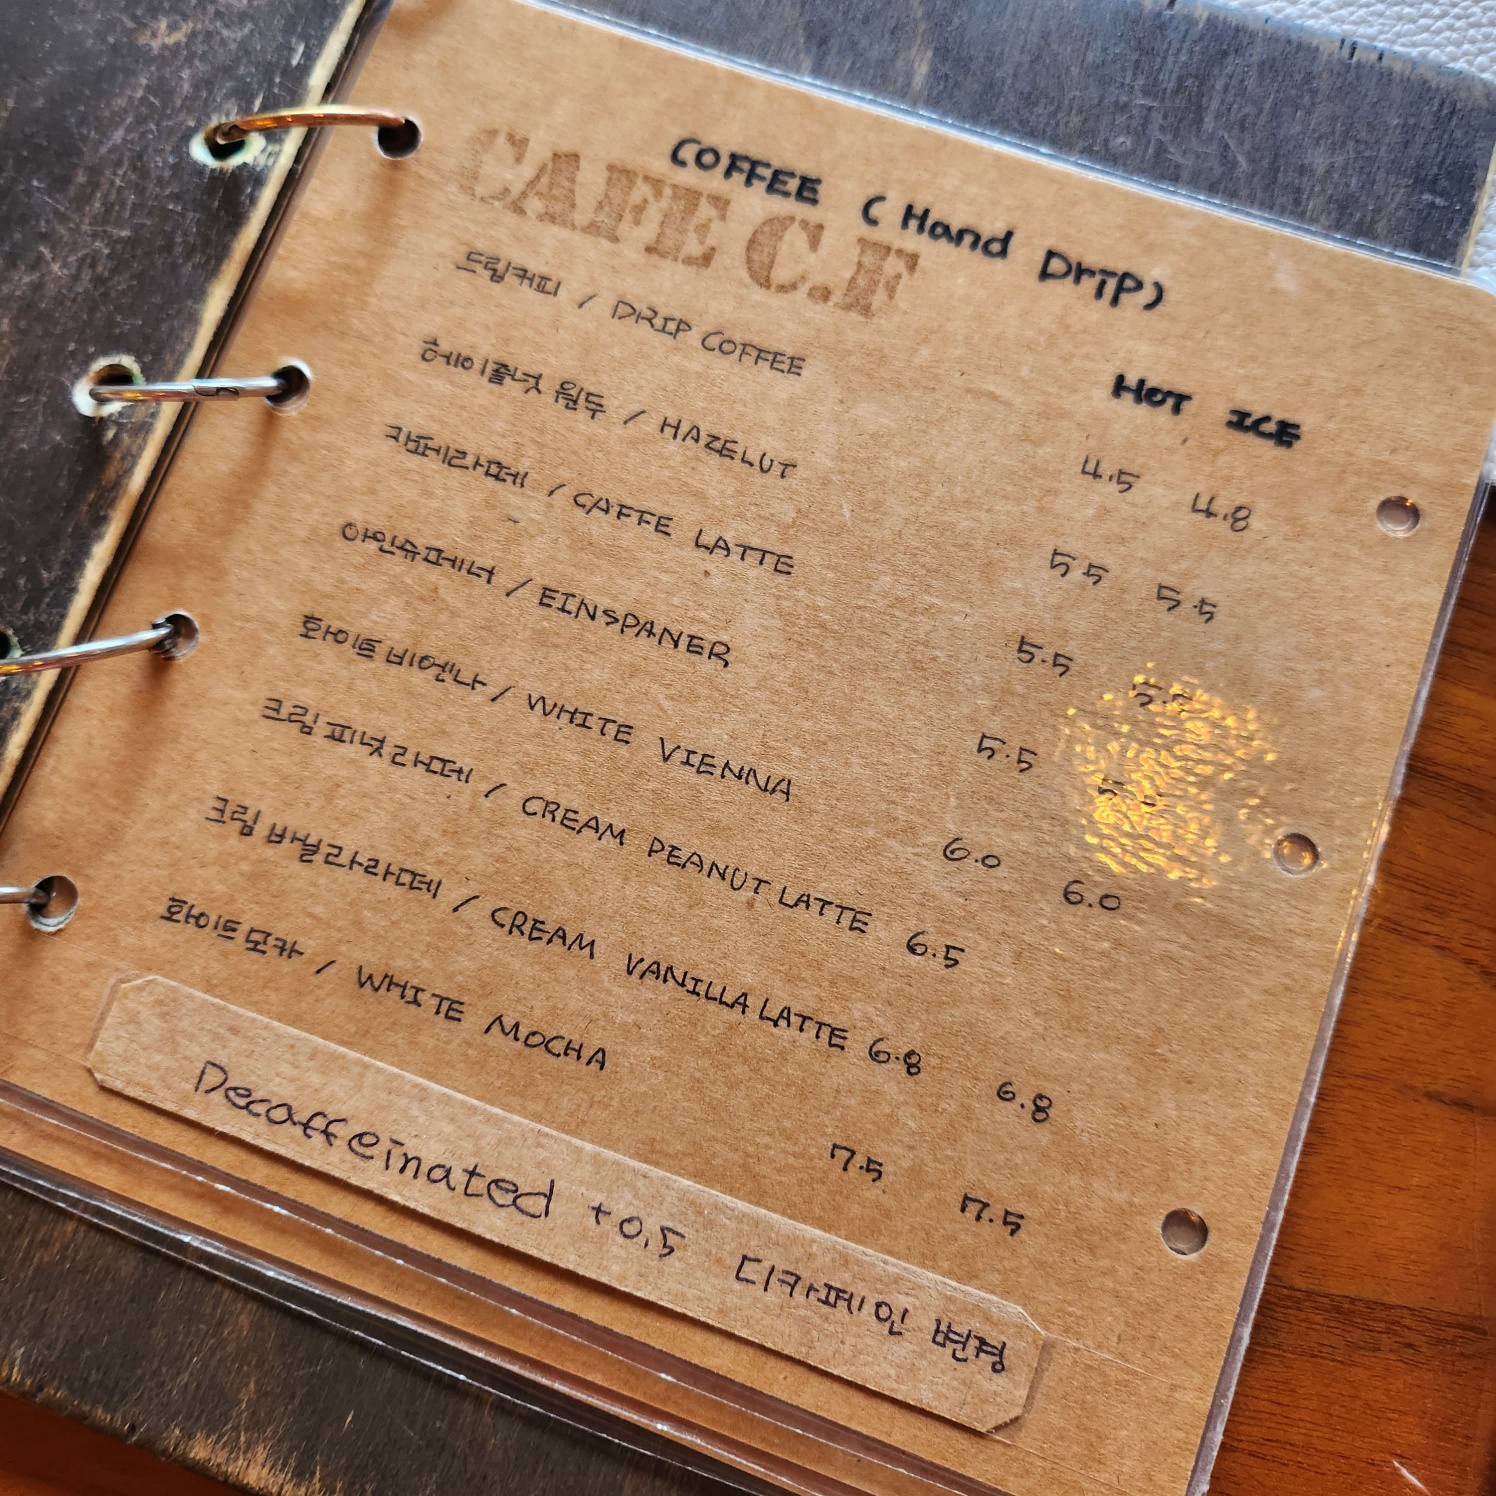 CAFE C.F
COFFEE (Hand Drip)
HOT ICE
드립커피 / DRIP COFFEE 4.5 4.8
헤이즐넛 원두 / HAZELUT 5.5 5.5
캄페라떼 / CAFFE LATTE 5.5 5.5
아인슈페너 / EINSPANER 5.5
화이트 비엔나 / WHITE VIENNA 6.0 6.0
크림 피넛라떼 / CREAM PEANUT LATTE 6.5
크림 바닐라라떼 / CREAM VANILLA LATTE 6.8 6.8
화이트모카 / WHITE MOCHA 7.5 7.5
Decaffeinated +0.5 디카페인 변경